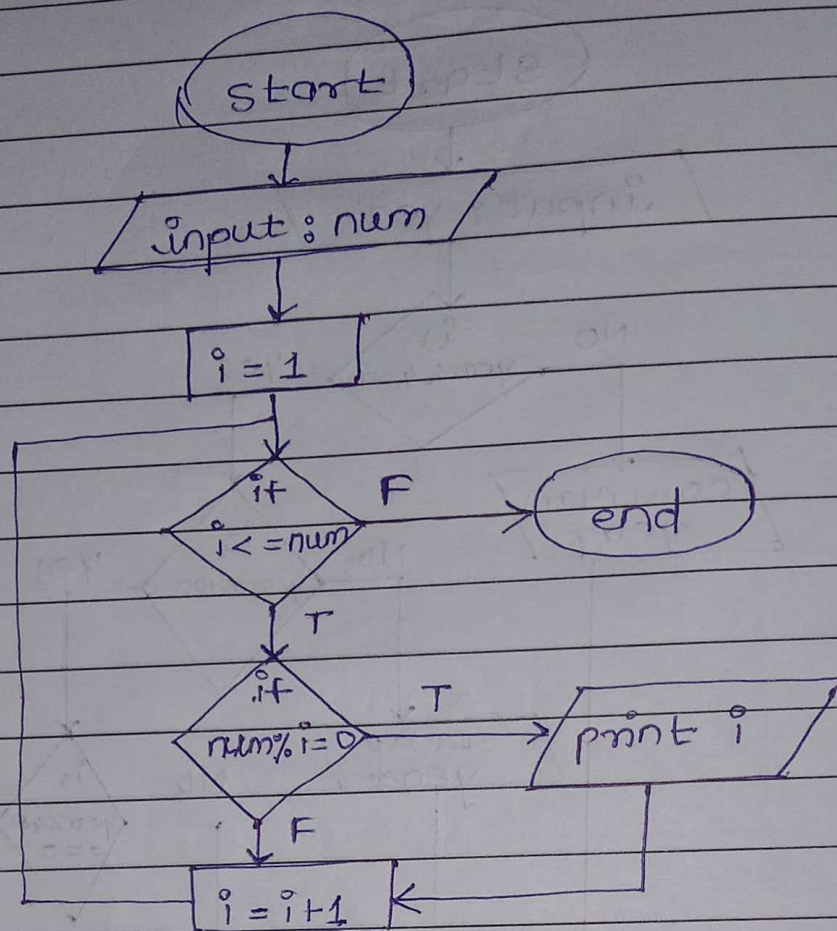 start
input : num
i = 1
if
i<=num
F
end
T
if
num%i=0
T
print i
F
i = i+1